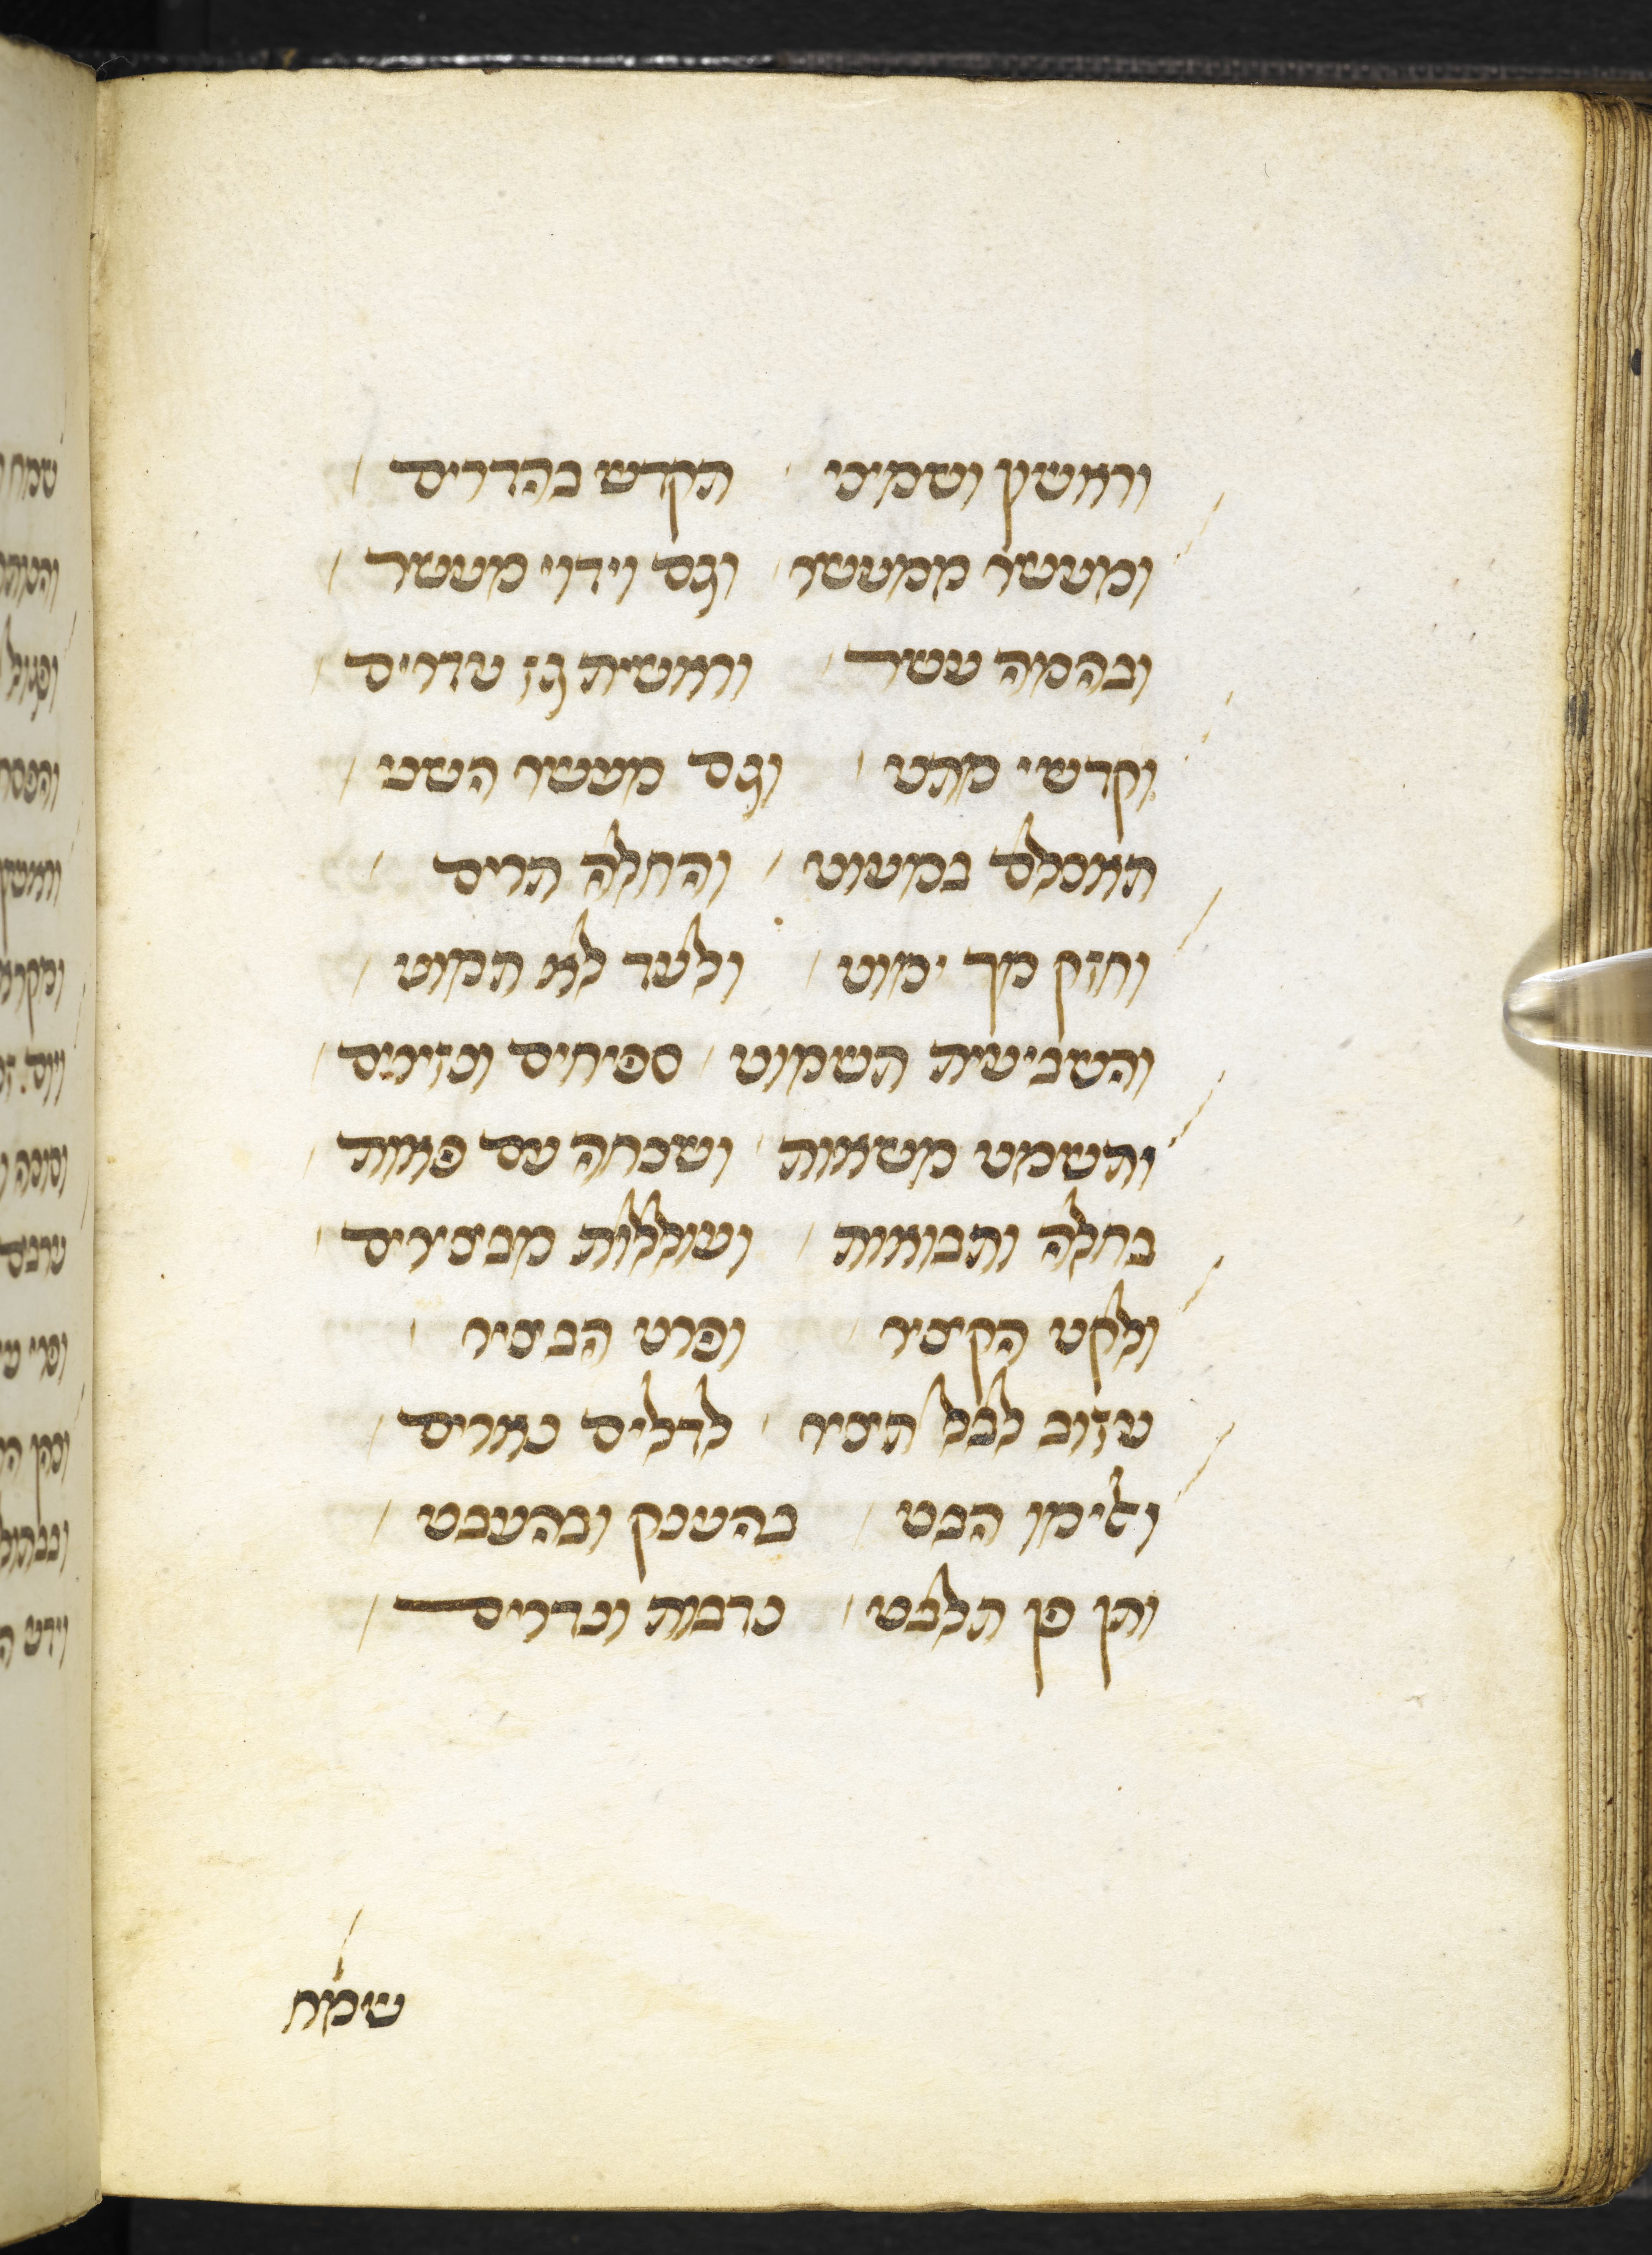 וראשון ושמיני תקדש בהדרים
ומעשר ממעשר וגם וידוי מעשר
ובהמה עשר וראשית גז עדרים
וקדשי מתט וגם מעשר השנ
תאכלם במעוט והחלה תרים
והזק מך ימוט ולעד לא תמוט
והשביעית תשמוט ספיחים ונזירים
ותשמט משאות ושכחה עם פאות
בחלה ותבואות ועוללות מבצירים
ולקט הקציר ופרט הבציר
עזוב לבל תציר לדלים נאורים
ולימן הבט בהענק ובהעבט
ותן פן תלבט נדבות ונדרים
שמח